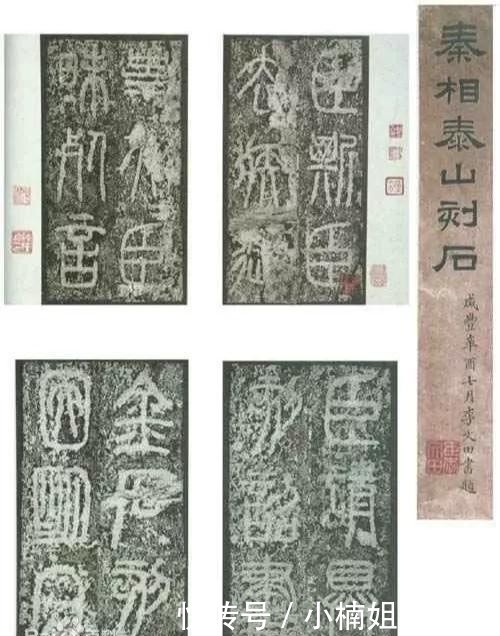 秦相泰山刻石
咸豐辛酉七月李文田書題
臣斯臣
去疾御
史夫臣
昧死言
臣請具
刻詔書
金石刻
因明白
快传号 / 小楠姐